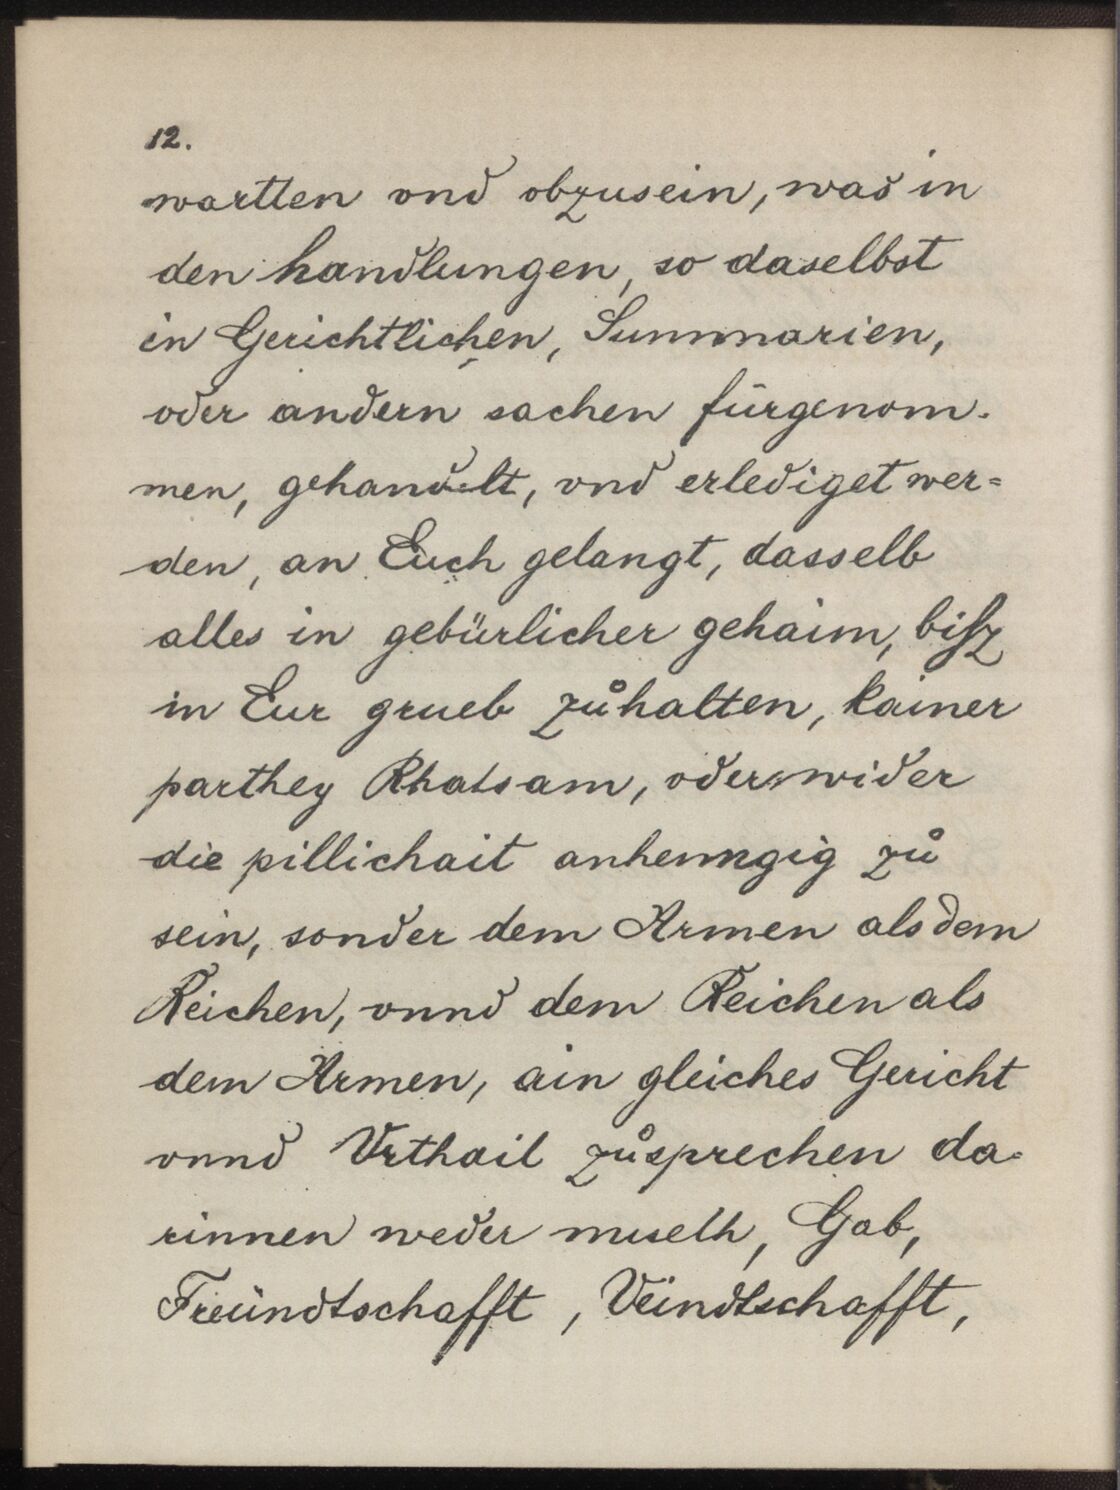 12.
wartten vnd obzusein, was in
den handlungen, so daselbst
in Gerichtlichen, Summarien,
oder andern sachen fürgenom-
men, gehandelt, vnd erlediget wer=
den, an Euch gelangt, dasselb
alles in gebürlicher gehaim, bisz
in Eur grueb zůhalten, kainer
parthey Rhatsam, oder wider
die pillichait anhenngig zů
sein, sonder dem Armen als dem
Reichen, vnnd dem Reichen als
dem Armen, ain gleiches Gericht
vnnd Vrthail zůsprechen da-
rinnen weder mueth, Gab,
Freündtschafft, Veindtschafft,